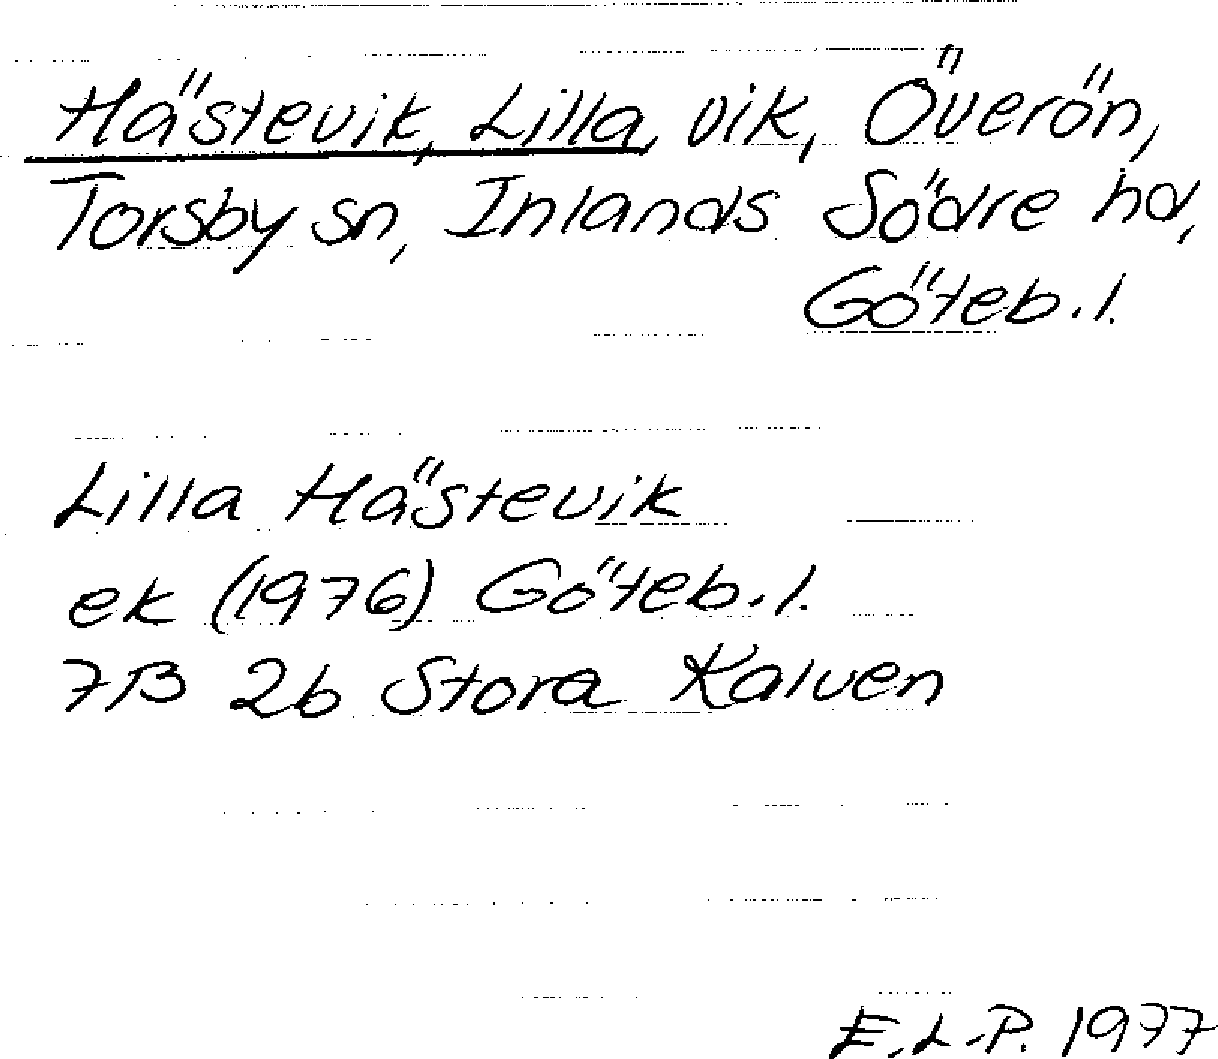 Hästevik, Lilla, vik, Överön,
Torsby sn, Inlands Södre hd,
Göteb.l.
Lilla Hästevik
ek (1976) Göteb.l.
7B 2b Stora Kalven
E.L-P. 1977